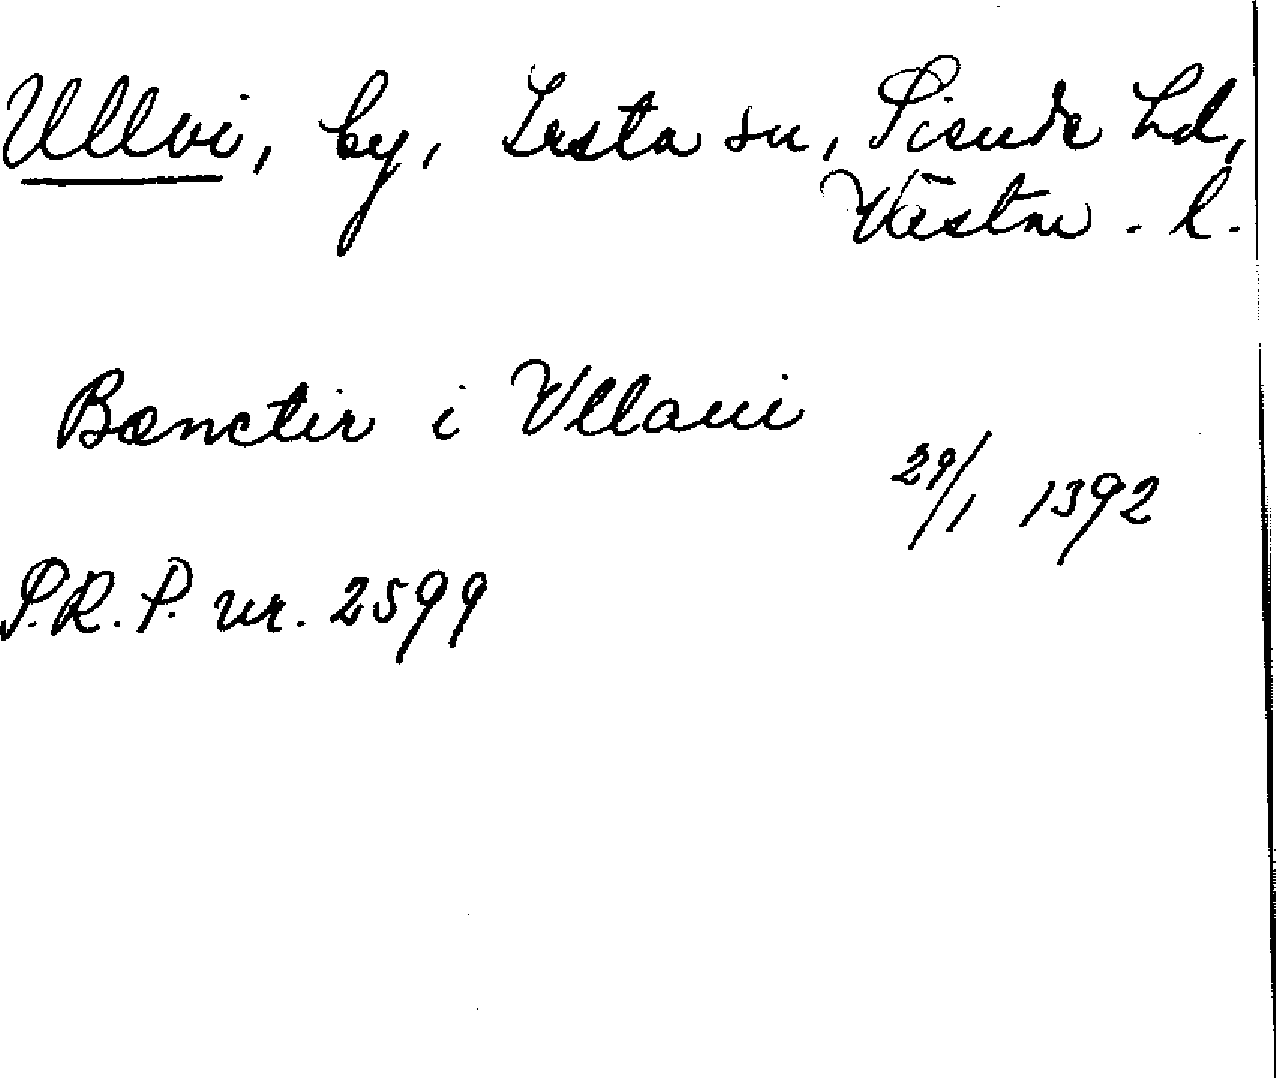 Ullvi, by, Irsta sn, Siende hd,
Västm. l.
Bænctir i Vllaui
29/1 1392
S.R.P. nr. 2599